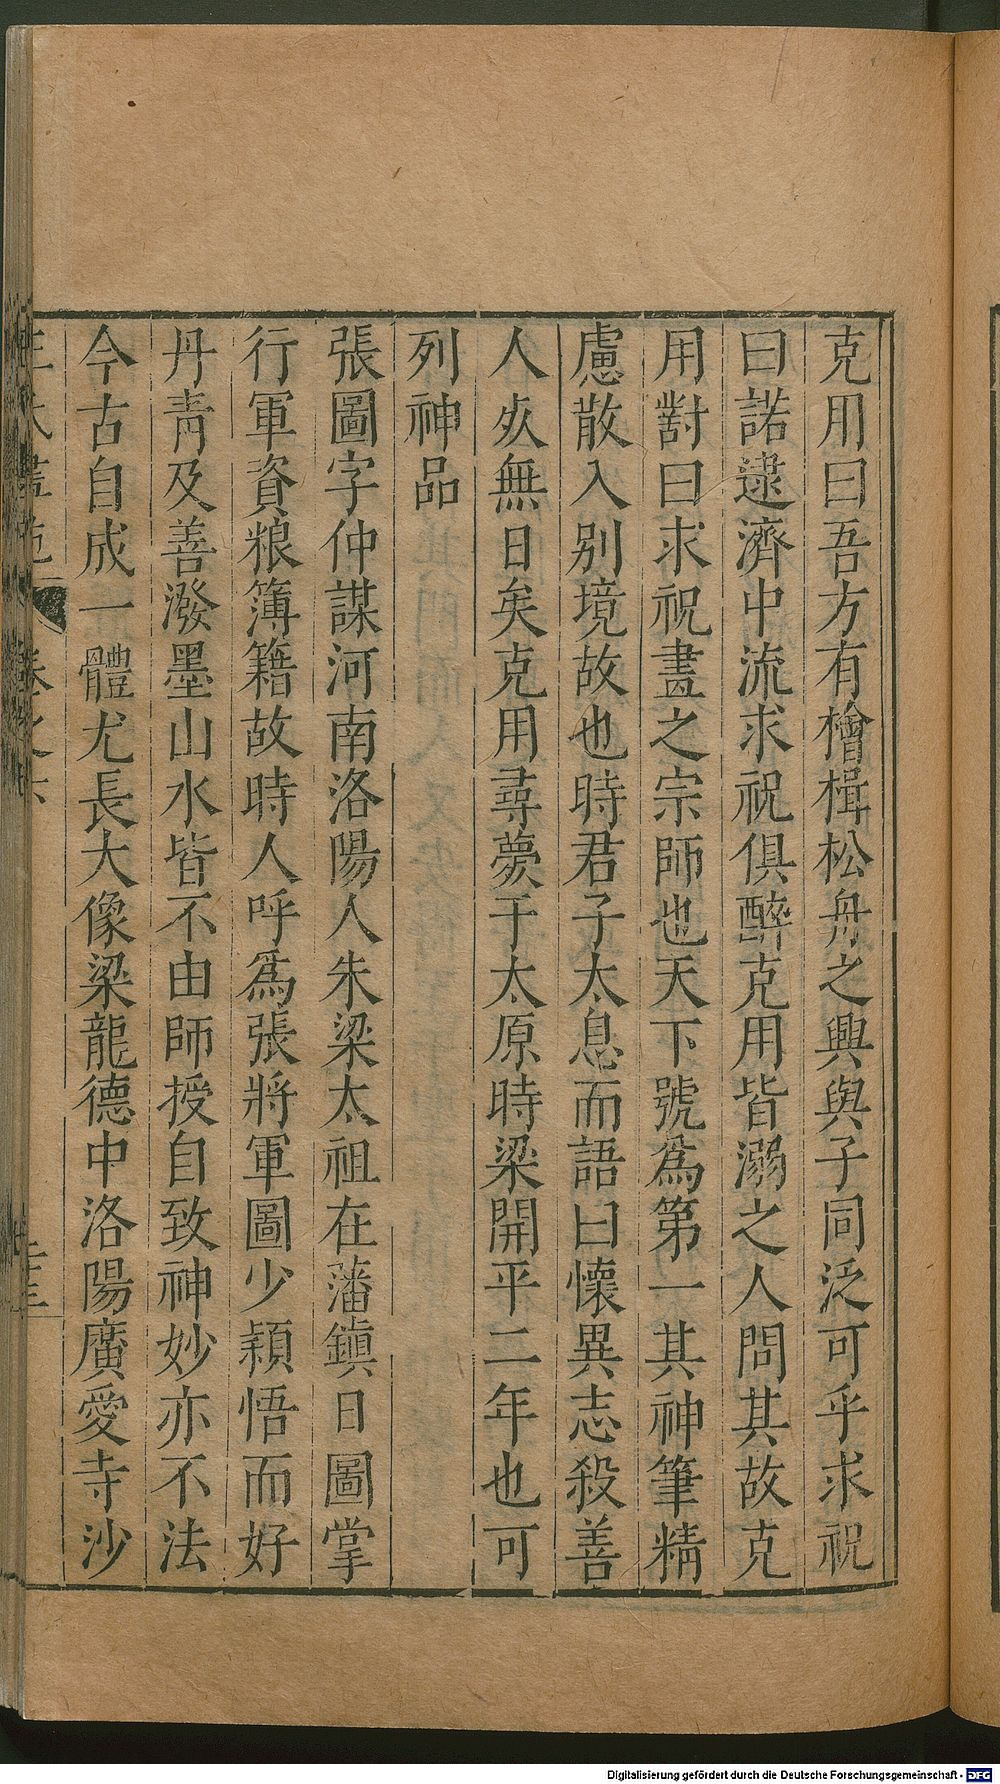 克用曰吾方有檜楫松舟之興與子同泛可乎求祝
曰諾逮濟中流求祝俱醉克用皆溺之人問其故克
用對曰求祝畫之宗師也天下號爲第一其神筆精
慮散入别境故也時君子太息而語曰懷異志殺善
人夾無日矣克用尋夢于太原時梁開平二年也可
列神品
張圖字仲謀河南洛陽人朱梁太祖在藩鎮日圖掌
行軍資粮簿籍故時人呼爲張將軍圖少穎悟而好
丹青及善潑墨山水皆不由師授自致神妙亦不法
今古自成一體尤長大像梁龍德中洛陽廣愛寺沙
卷之六
Digitalisierung gefördert durch die Deutsche Forschungsgemeinschaft - DFG